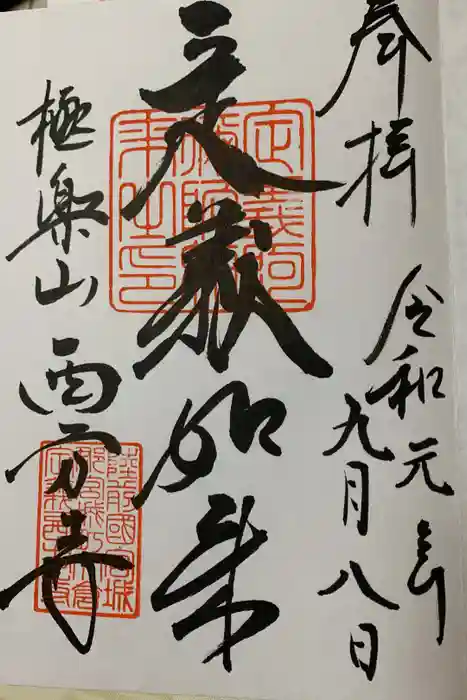 奉拝
令和元年
九月八日
定義如来
極楽山
西方寺